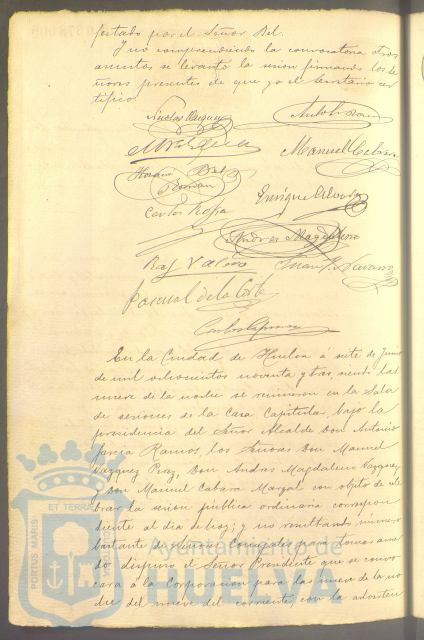 pestado por el Señor Bel.
Y no comprendiendo la convocatoria otros
asuntos se levanta la sesion firmando los Se-
ñores presentes de que yo el Secretario cer-
tifico.
Manuel Cabera
Horacio Bel
Roman
Enrique
Carlos Rofa
Andres Magdalena
Raf Valero
Juan J. Navarro
Pascual de la Corte
Carlos
En la Ciudad de Huelva á siete de Junio
de mil ochocientos noventa y tres, siendo las
nueve de la noche se reunieron en la Sala
de sesiones de la Casa Capitular, bajo la
presidencia del Señor Alcalde Don Antonio
García Ramos, los Señores Don Manuel
Vazquez Perez, Don Andres Magdalena Vazquez
y Don Manuel Cabera Margal con objeto de cele
brar la sesion publica ordinaria correspon
diente al dia de hoy; y no resultando número
bastante de Señores Concejales para tomar acuer
do dispuso el Señor Presidente que se convo
cara á la Corporacion para las nueve de la no
che del nueve del corriente, con la adverten
PORTUS MARIS
ET TERRAE
Ayuntamiento de
HUELVA